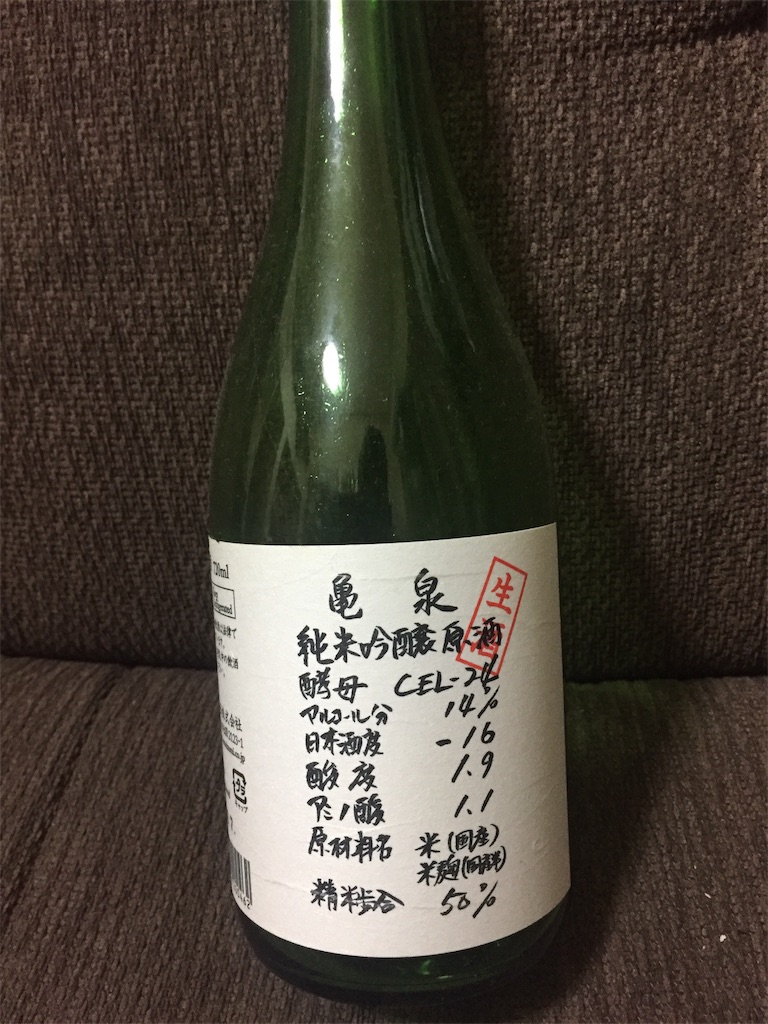 亀泉
生酒
純米吟醸原酒
酵母 CEL-24
アルコール分 14%
日本酒度 -16
酸度 1.9
アミノ酸 1.1
原材料名 米(国産)
米麹(国産米)
精米歩合 50%
720ml